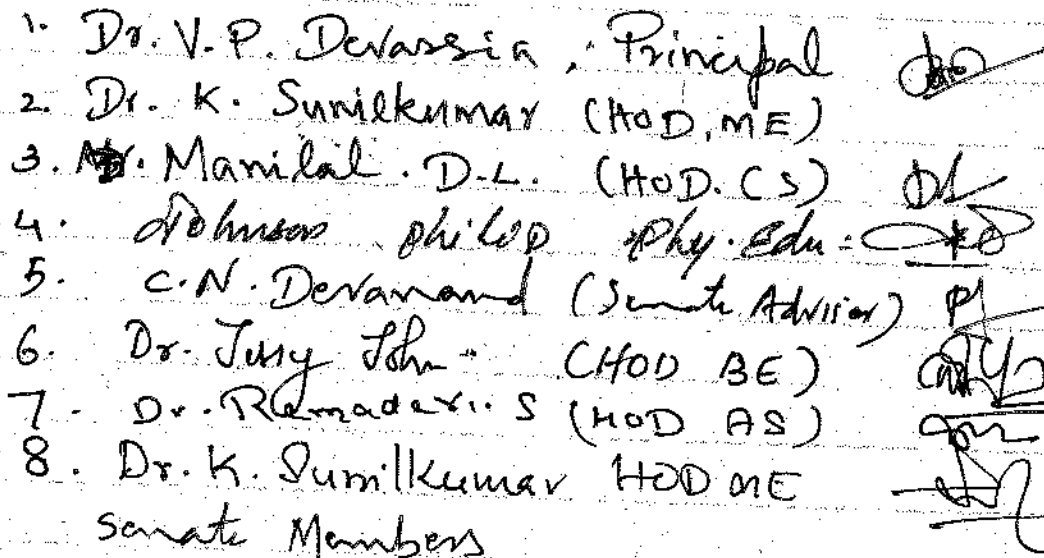 1. Dr. V. P. Devassia, Principal
2. Dr. K. Sunilkumar (HOD, ME)
3. Manilal. D.L. (HOD. CS)
4. Johnson Philip Phy. Edu.
5. C.N. Devanand (Senate Advisior)
6. Dr. Jessy John (HOD BE)
7. Dr. Ramadevi. S (HOD AS)
8. Dr. K. Sunilkumar HOD ME
Senate Members